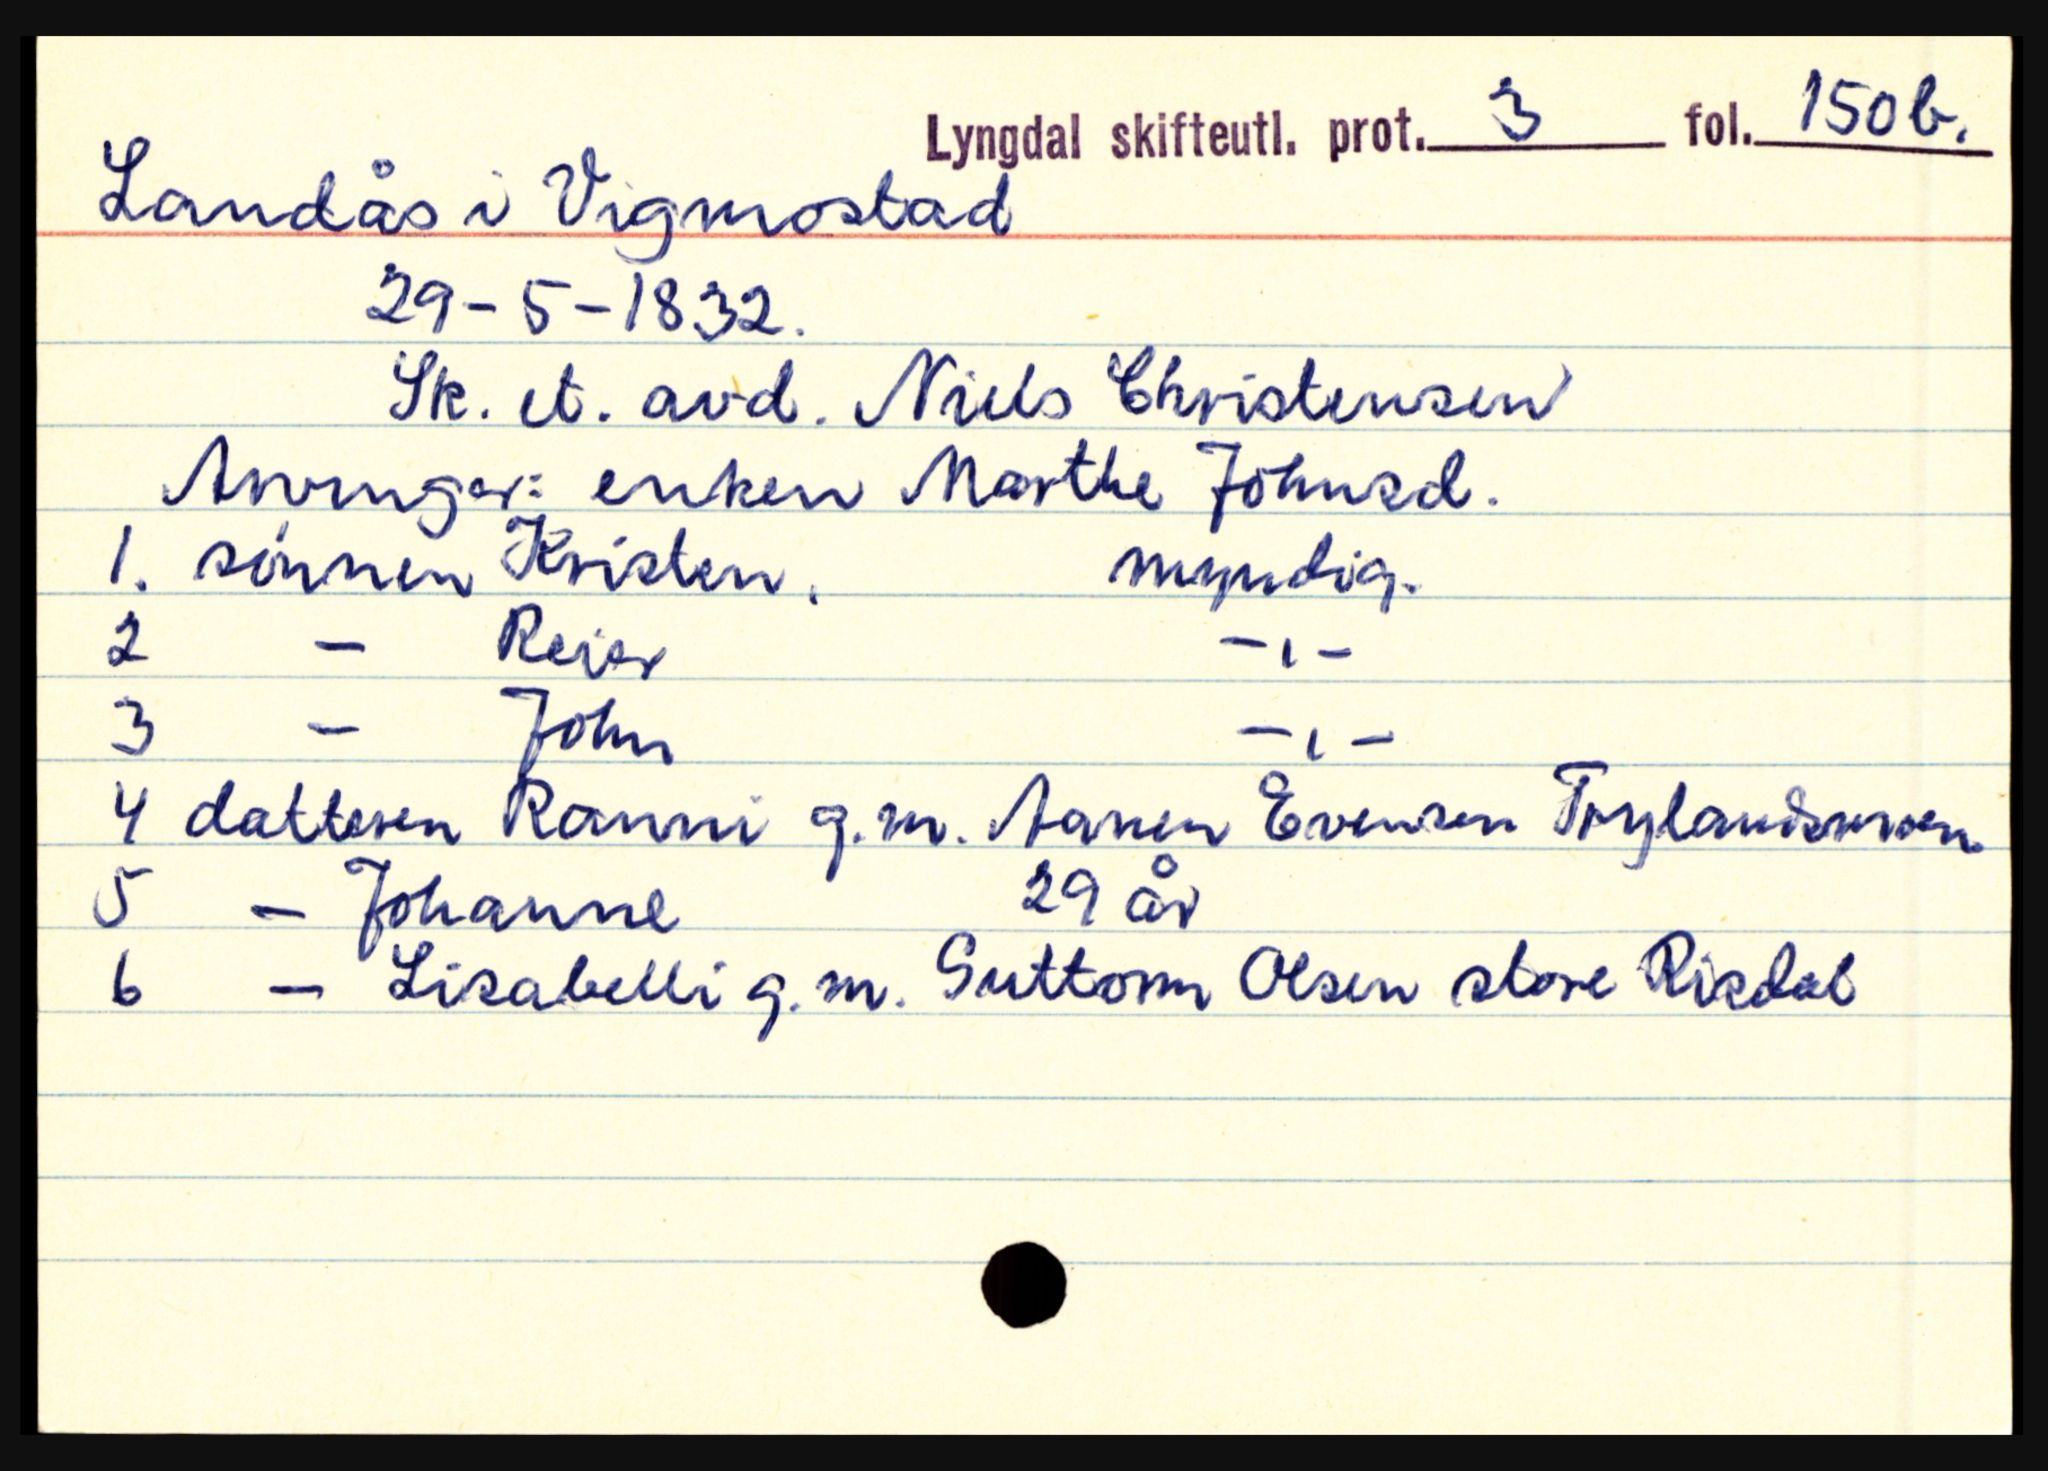 Lyngdal skifteutl. prot. 3 fol. 150b.
Landås i Vigmostad
29-5-1832.
Sk. et. avd. Niels Christensen
Arvinger: enken Marthe Johnsd.
1. sønnen Kristen. myndig.
2 - Reier -ı-
3 - John -ı-
4 datteren Ranni g.m. Aanen Evensen
5 - Johanne 29 år
6 - Lisabelli g.m. Guttorm Olsen store Risdal